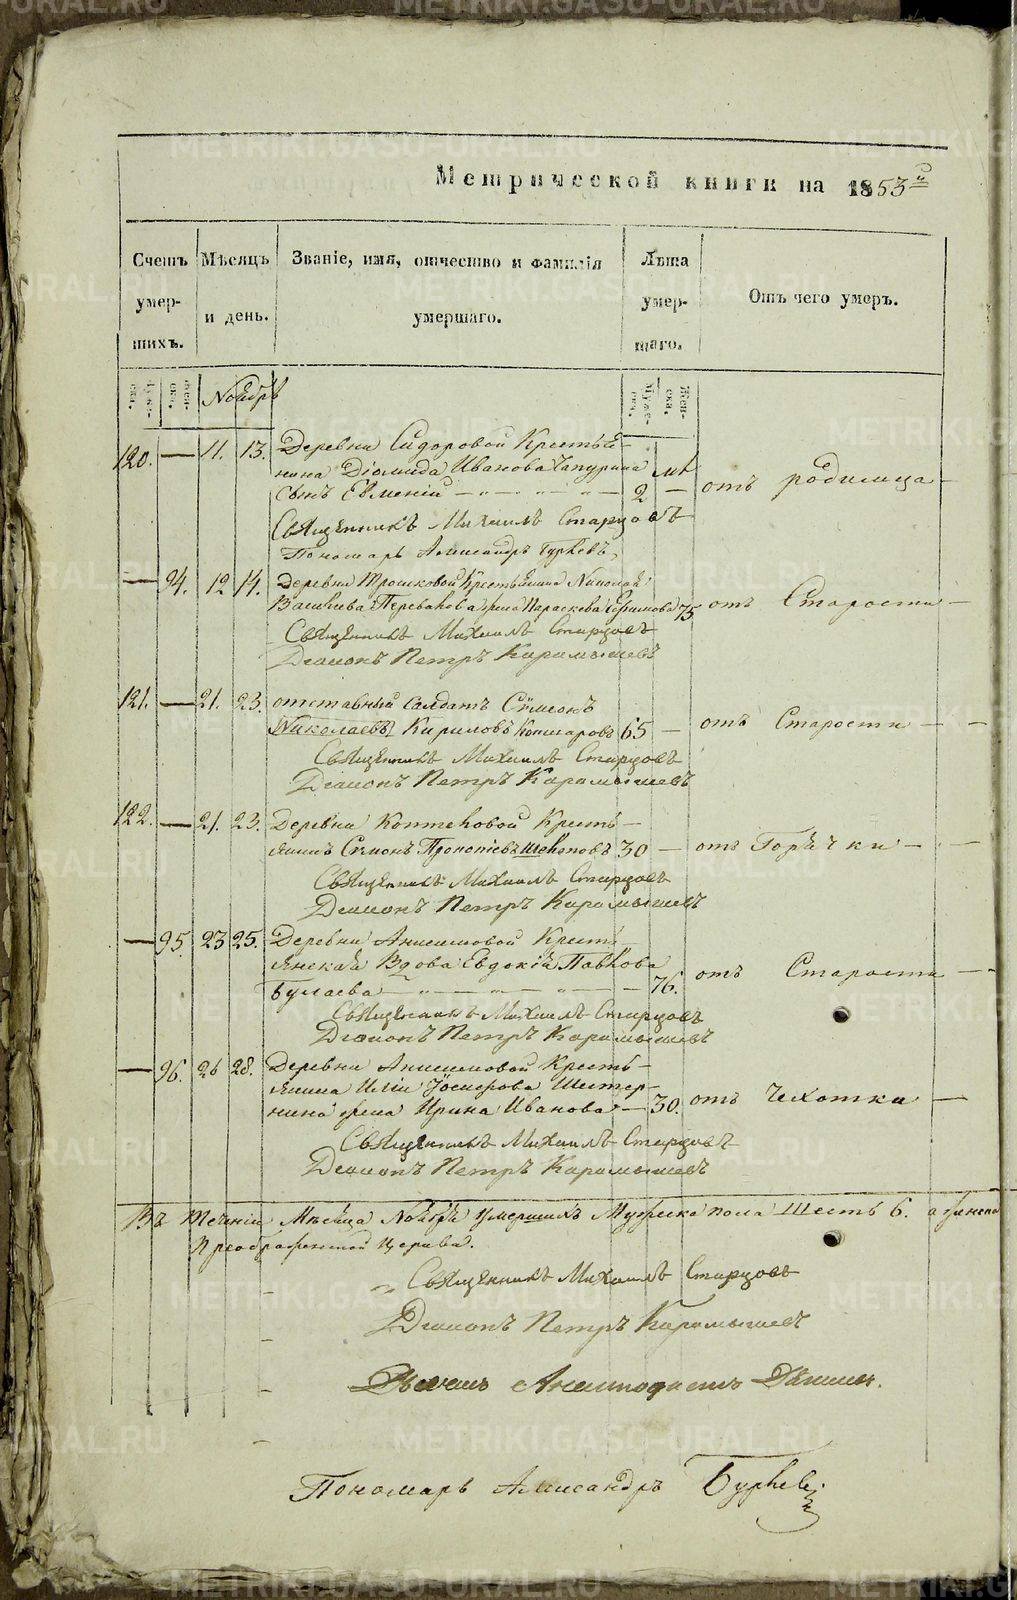 Метрической книги на 1853й
Счетъ умер- шихъ.
Мѣсяцъ и день.
Званіе, имя, отчество и фамилія умершаго.
Лѣта умер- шаго.
Отъ чего умеръ.
Ноябрь
120. — 11. 13. Деревни Сидоровой Крестья-
нина Діомида Иванова Чапурина
сынъ Евменій 2 мѣ — отъ родимца —
Священникъ Михаилъ Старцовъ
Пономарь Александръ
— 94. 12 14. Деревни Трошковой Крестьянина Николая
Васильева жена Параскева 75 отъ Старости —
Священникъ Михаилъ Старцовъ
Діаконъ Петръ Карамышевъ
121. — 21. 23. отставный Солдатъ Сѵмеонъ
Николаевъ Кириловъ 65 — отъ Старости — —
Священникъ Михаилъ Старцовъ
Діаконъ Петръ Карамышевъ
122. — 21. 23. Деревни Коптеловой Кресть-
янинъ Прокопіевъ 30 — отъ Горячки — —
Священникъ Михаилъ Старцовъ
Діаконъ Петръ Карамышевъ
— 95. 23 25. Деревни Анисимовой Кресть-
янская Вдова Евдокія Павлова
76. отъ Старости — —
Священникъ Михаилъ Старцовъ
Діаконъ Петръ Карамышевъ
— 96. 26 28. Деревни Анисимовой Кресть-
янина Иліи Іосифова Шестер-
нина жена Ирина Иванова — 30. отъ Чехотки —
Священникъ Михаилъ Старцовъ
Діаконъ Петръ Карамышевъ
Въ теченіи Мѣсяца Ноября умершихъ Мужеска пола Шесть 6. а женска
Преображенской Церкви.
Священникъ Михаилъ Старцовъ
Діаконъ Петръ Карамышевъ
Дьячекъ
Пономарь Александръ
METRIKI.GASO-URAL.RU